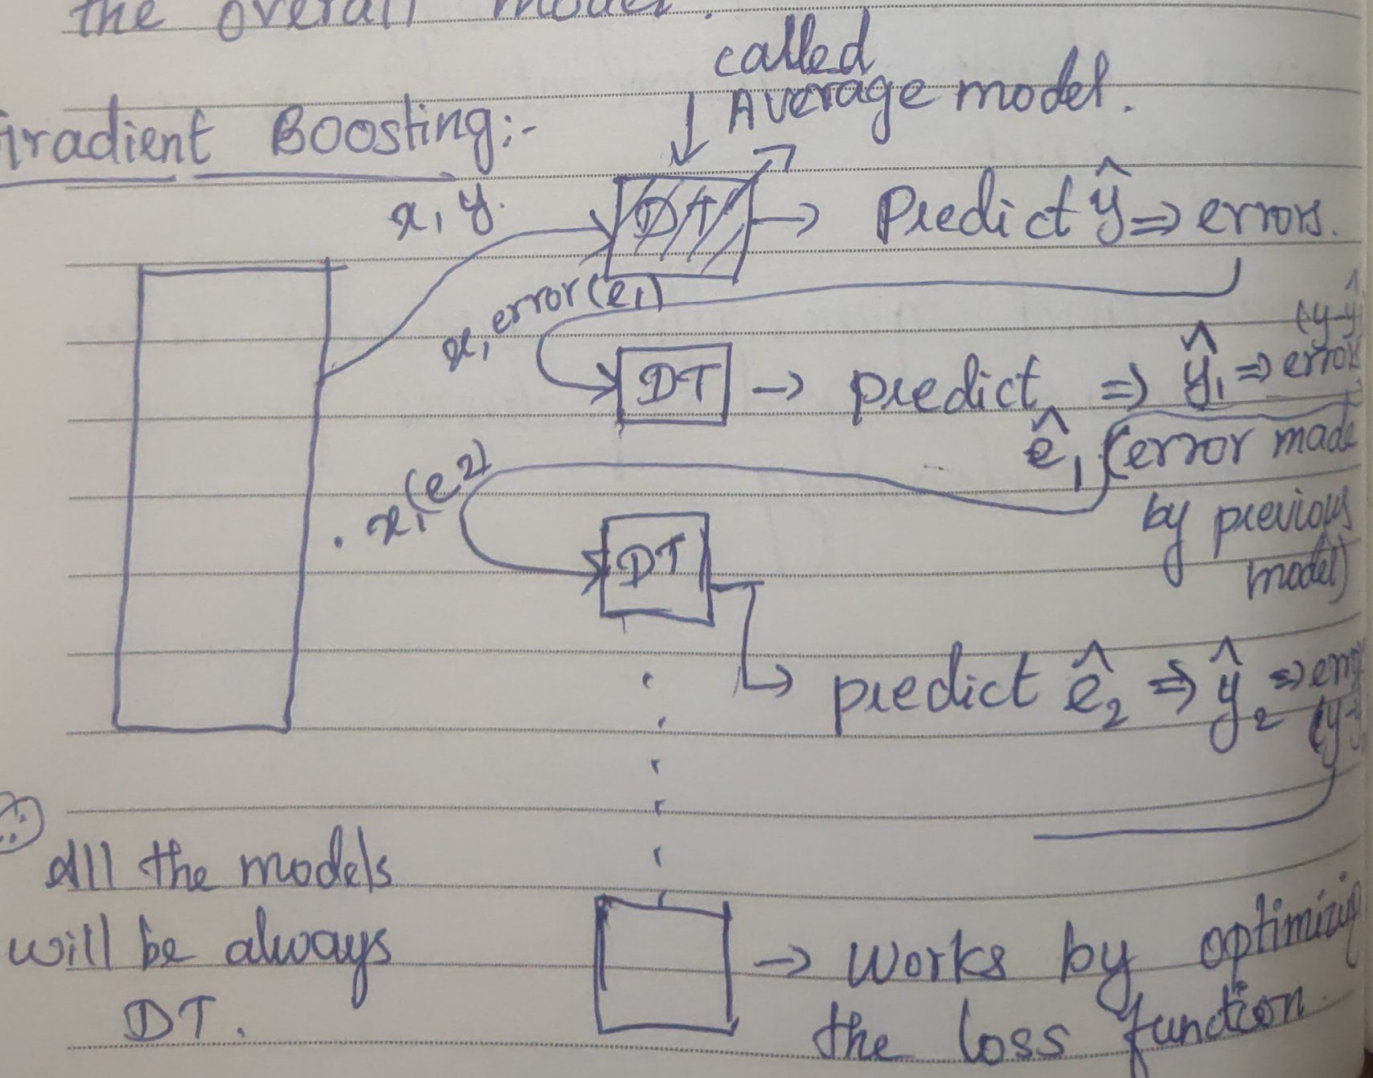 the overall model.
called
Average model.
Gradient Boosting:-
x, y.
DT → Predict ŷ ⇒ errors.
x, error(e1)
(y-ŷ
DT → predict ê1 ⇒ ŷ1 ⇒ error
(error made
by previous
model)
x, (e2)
DT
predict ê2 ⇒ ŷ2 ⇒
All the models
will be always
DT.
→ Works by optimizing
the loss function.